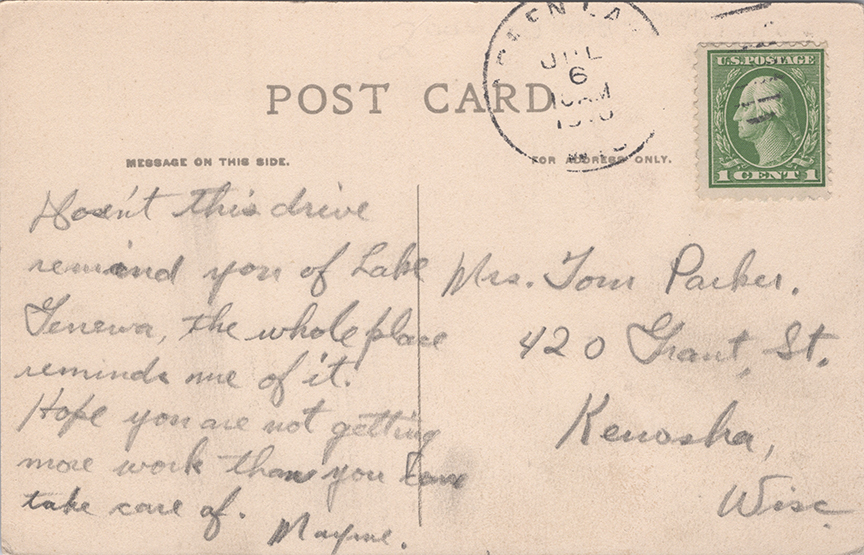 GREEN LA
JUL
6
10 AM
WIS
U.S. POSTAGE
1 CENT 1
POST CARD
MESSAGE ON THIS SIDE.
FOR ADDRESS ONLY.
Dosen't this drive
remind you of Lake
Geneva, the whole place
reminds me of it.
Hope you are not getting
more work than you can
take care of.
Mayme.
Mrs. Tom Parker.
420 Grant St.
Kenosha,
Wisc